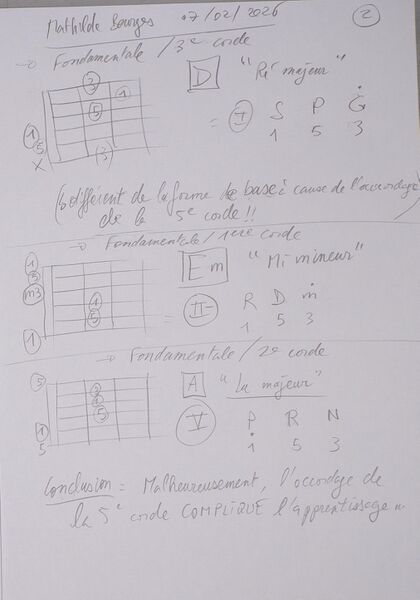 Mathilde Bourges 07/02/2026 2
→ Fondamentale / 3e corde
3 1 5 1 5 X (3)
D "Ré majeur"
= I S P G
1 5 3
différent de la forme de base à cause de l'accordage
de la 5e corde !!
→ Fondamentale / 1ère corde
1 5 m3 1 5 1
Em "Mi mineur"
= II- R D m
1 5 3
→ Fondamentale / 2e corde
5 3 1 5 1 5
A "La majeur"
V P R N
1 5 3
Conclusion = Malheureusement, l'accordage de
la 5e corde COMPLIQUE l'apprentissage